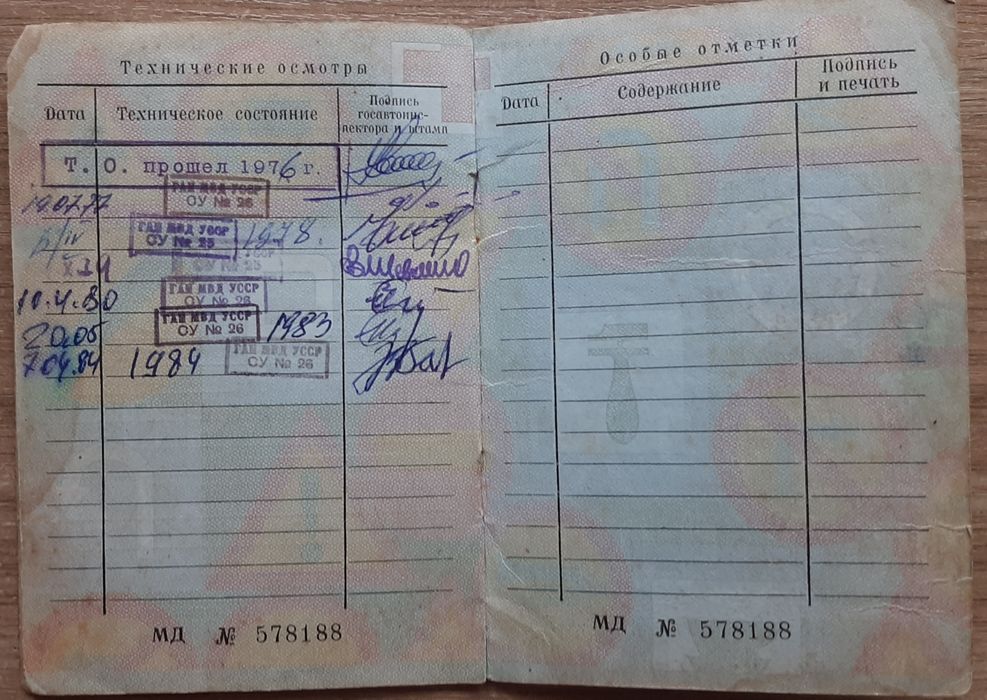 Технические осмотры
Дата
Техническое состояние
Подпись
госавтоинс-
пектора и штамп
Т. О. прошел 1976 г.
ГАИ МВД УССР
СУ № 26
19.07.77
ГАИ МВД УССР
СУ № 25
1978.
ГАИ МВД УССР
СУ № 26
10.4.80
ГАИ МВД УССР
СУ № 26
20.05
1983
7.04.84
1984
ГАИ МВД УССР
СУ № 26
МД № 578188
Особые отметки
Дата
Содержание
Подпись
и печать
МД № 578188